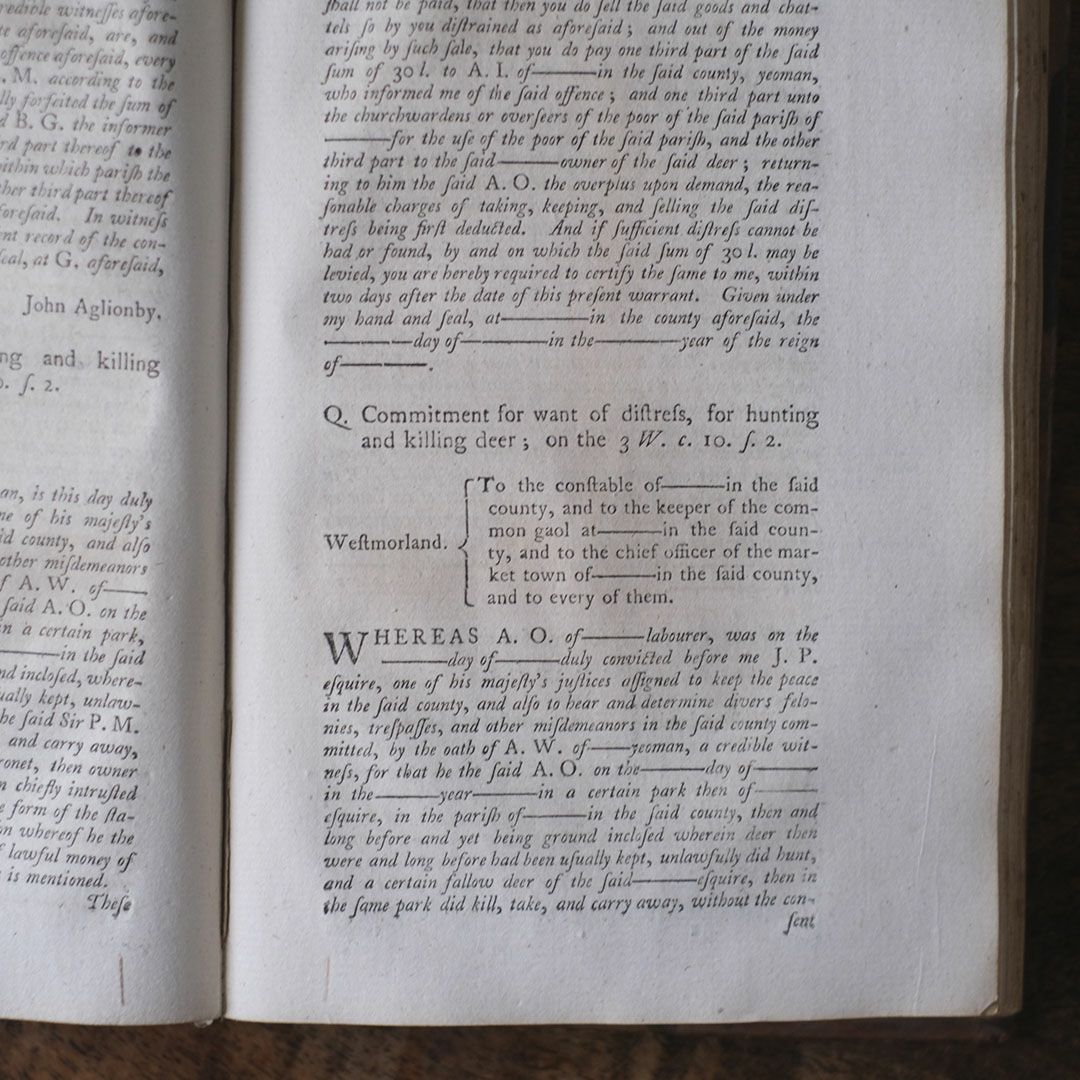 redible witnesses afore-
aforesaid, are, and
offence aforesaid, every
M. according to the
forfeited the sum of
B. G. the informer
part thereof to the
within which parish the
ther third part thereof
foresaid. In witness
record of the con-
seal, at G. aforesaid,
John Aglionby.
and killing
ſ. 2.
an, is this day duly
of his majeſty's
county, and alſo
other miſdemeanors
A. W. of——
ſaid A. O. on the
in a certain park,
——in the ſaid
incloſed, where-
ually kept, unlaw-
the ſaid Sir P. M.
and carry away,
ronet, then owner
chiefly intruſted
form of the ſta-
on whereof he the
lawful money of
is mentioned.
Theſe
ſhall not be paid, that then you do ſell the ſaid goods and chat-
tels ſo by you diſtrained as aforeſaid; and out of the money
ariſing by ſuch ſale, that you do pay one third part of the ſaid
ſum of 30 l. to A. I. of———in the ſaid county, yeoman,
who informed me of the ſaid offence; and one third part unto
the churchwardens or overſeers of the poor of the ſaid pariſh of
———for the uſe of the poor of the ſaid pariſh, and the other
third part to the ſaid———owner of the ſaid deer; return-
ing to him the ſaid A. O. the overplus upon demand, the rea-
ſonable charges of taking, keeping, and ſelling the ſaid diſ-
treſs being firſt deducted. And if ſufficient diſtreſs cannot be
had or found, by and on which the ſaid ſum of 30 l. may be
levied, you are hereby required to certify the ſame to me, within
two days after the date of this preſent warrant. Given under
my hand and ſeal, at———in the county aforeſaid, the
———day of———in the———year of the reign
of———.
Q. Commitment for want of diſtreſs, for hunting
and killing deer; on the 3 W. c. 10. ſ. 2.
To the conſtable of———in the ſaid
county, and to the keeper of the com-
mon gaol at———in the ſaid coun-
Weſtmorland.
ty, and to the chief officer of the mar-
ket town of———in the ſaid county,
and to every of them.
WHEREAS A. O. of———labourer, was on the
———day of———duly convicted before me J. P.
eſquire, one of his majeſty's juſtices aſſigned to keep the peace
in the ſaid county, and alſo to hear and determine divers felo-
nies, treſpaſſes, and other miſdemeanors in the ſaid county com-
mitted, by the oath of A. W. of——yeoman, a credible wit-
neſs, for that he the ſaid A. O. on the———day of———
in the———year———in a certain park then of———
eſquire, in the pariſh of———in the ſaid county, then and
long before and yet being ground incloſed wherein deer then
were and long before had been uſually kept, unlawfully did hunt,
and a certain fallow deer of the ſaid———eſquire, then in
the ſame park did kill, take, and carry away, without the con-
ſent